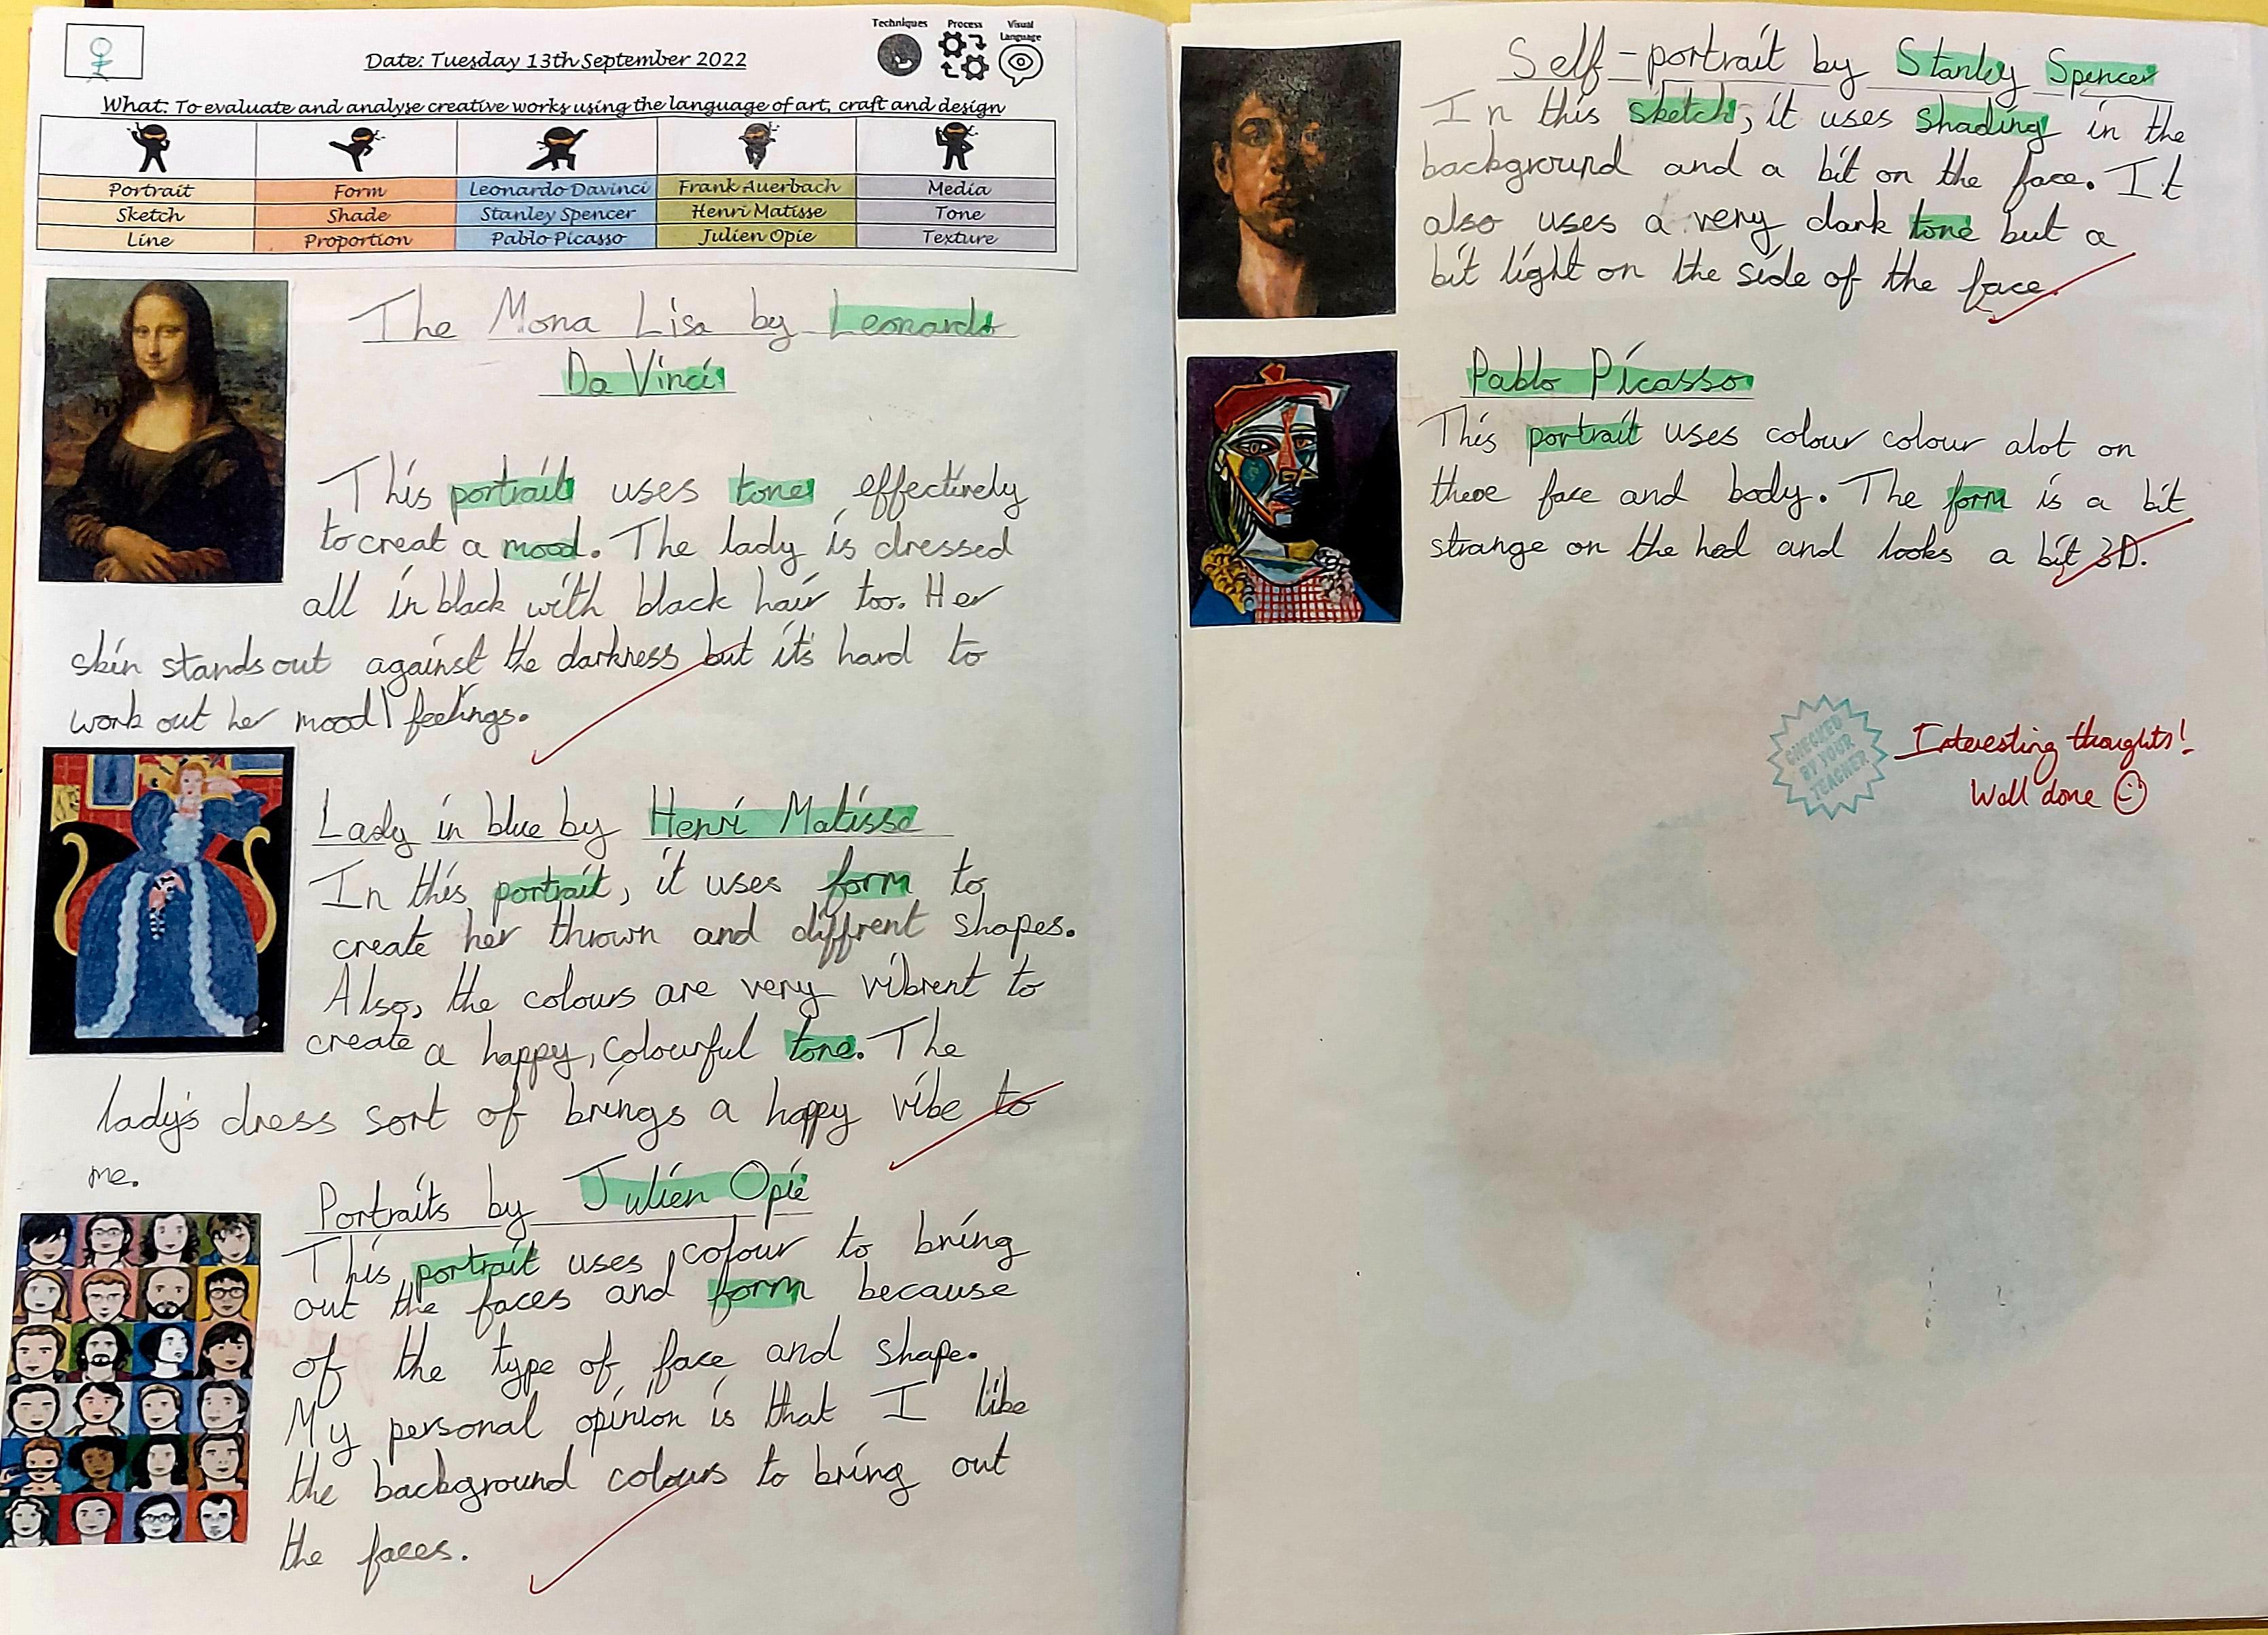 Techniques Process Visual Language
Date: Tuesday 13th September 2022
What: To evaluate and analyse creative works using the language of art, craft and design
Portrait Form Leonardo Davinci Frank Auerbach Media
Sketch Shade Stanley Spencer Henri Matisse Tone
Line Proportion Pablo Picasso Julien Opie Texture
The Mona Lisa by Leonardo
Da Vinci
This portrait uses tone effectively
to creat a mood. The lady is dressed
all in black with black hair too. Her
skin stands out against the darkness but it's hard to
work out her mood/feelings.
Lady in blue by Henri Matisse
In this portrait, it uses form to
create her thrown and diffrent shapes.
Also, the colours are very vibrent to
create a happy, colourful tone. The
lady's dress sort of brings a happy vibe to
me.
Portraits by Julien Opie
This portrait uses colour to bring
out the faces and form because
of the type of face and shape.
My personal opinion is that I like
the background colours to bring out
the faces.
Self-portrait by Stanley Spencer
In this sketch, it uses shading in the
background and a bit on the face. It
also uses a very dark tone but a
bit light on the side of the face.
Pablo Picasso
This portrait uses colour colour alot on
there face and body. The form is a bit
strange on the hed and looks a bit 3D.
CHECKED
BY YOUR
TEACHER
Interesting thoughts!
Well done